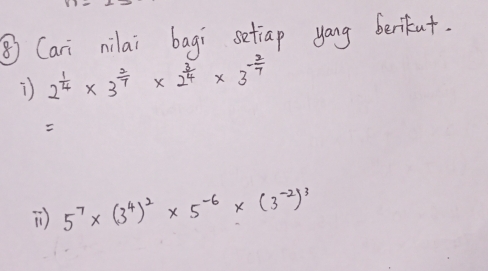 ⑧ Cari nilai bagi setiap yang berikut.
i) 2^{1/4} × 3^{2/7} × 2^{3/4} × 3^{-2/7}
=
ii) 5^7 × (3^4)^2 × 5^{-6} × (3^{-2})^3